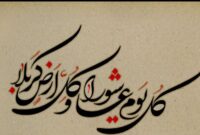 کل یوم عاشورا و کل ارض کربلا